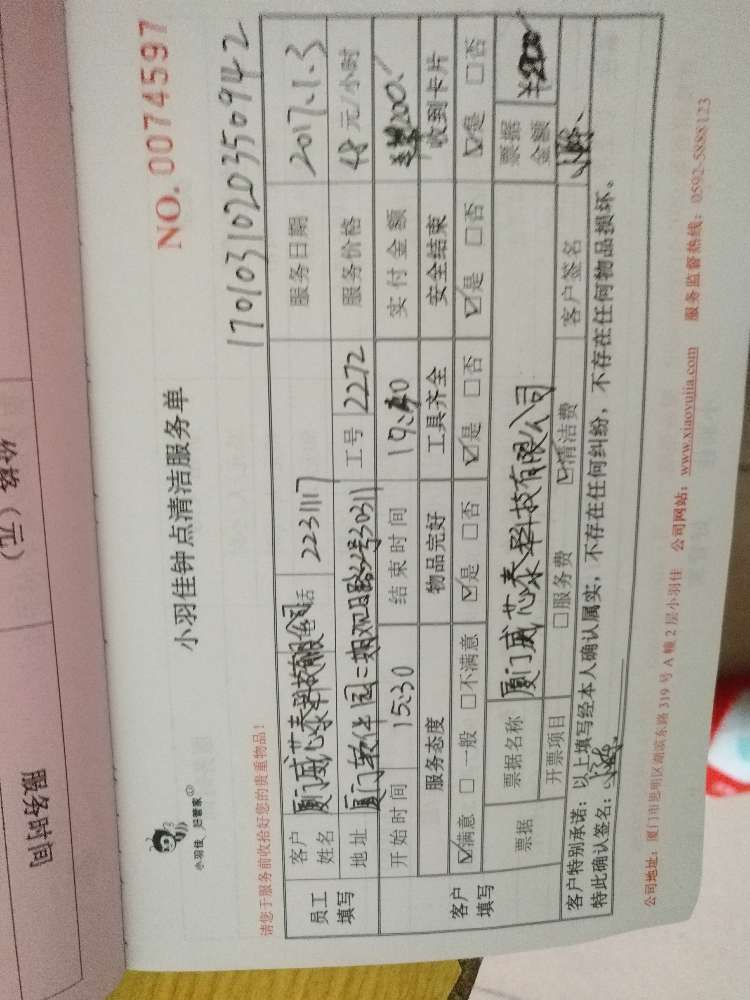 NO. 0074597
小羽佳 好管家
小羽佳钟点清洁服务单
请您于服务前收拾好您的贵重物品！
17010310203509142
员工填写
客户姓名 厦门威芯泰科技有限公司 电话 2231117 服务日期 2017.1.3
地址 厦门软件园二期观日路32号303 工号 2272 服务价格 48元/小时
开始时间 15:30 结束时间 19:40 实付金额 200.
客户填写
服务态度 物品完好 工具齐全 安全结束 收到卡片
☑满意 □一般 □不满意 ☑是 □否 ☑是 □否 ☑是 □否 ☑是 □否
票据 票据名称 厦门威芯泰科技有限公司 票据金额 ¥200
开票项目 □服务费 ☑清洁费 客户签名
客户特别承诺：以上填写经本人确认属实，不存在任何纠纷，不存在任何物品损坏。
特此确认签名：
公司地址：厦门市思明区湖滨东路319号A幢2层小羽佳 公司网站：www.xiaoyujia.com 服务监督热线：0592-5888123
服务时间
价格（元）